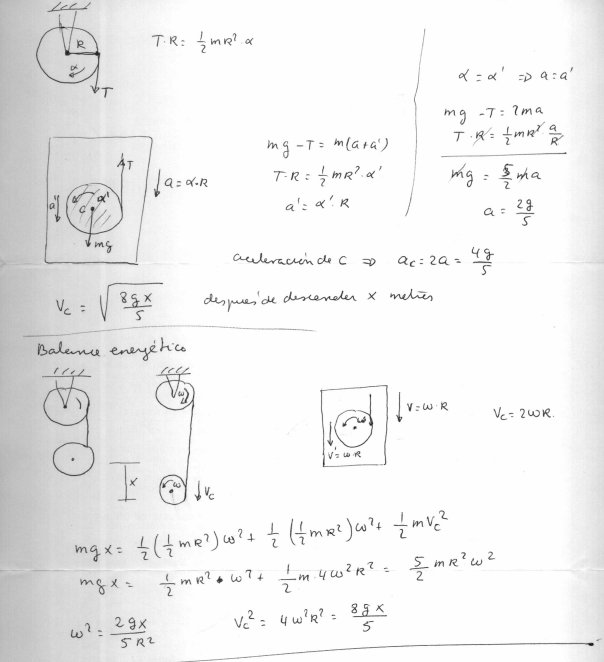 R
α
T
T·R = 1/2 mR² α
α = α' ⇒ a = a'
mg - T = 2ma
T·R = 1/2 mR² a/R
mg = 5/2 ma
a = 2g/5
T
a'
α'
C
mg
a = α·R
mg - T = m(a+a')
T·R = 1/2 mR²·α'
a' = α'·R
aceleración de C ⇒ a_c = 2a = 4g/5
V_c = √(8gx/5) después de descender x metros
Balance energético
ω
ω
x
V_c
ω
V = ω·R
V' = ω·R
V_c = 2ωR.
mgx = 1/2 (1/2 mR²) ω² + 1/2 (1/2 mR²) ω² + 1/2 m V_c²
mgx = 1/2 mR² · ω² + 1/2 m·4ω²R² = 5/2 mR²ω²
ω² = 2gx/5R²
V_c² = 4ω²R² = 8gx/5